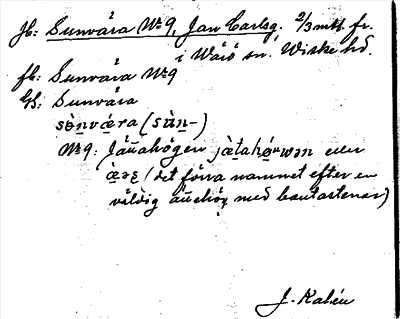 jb: Sunvära Nr 9, Jan Carlsg. 2/3 mtl. fr.
i Värö sn. Viske hd.
fb: Sunvära Nr 9
Gs: Sunvära
sònvǽra (sùn-)
Nr 9: Jättahögen jætahørwən eller
(det förra namnet efter en
väldig ättehög med bautastenar)
J. Kalén